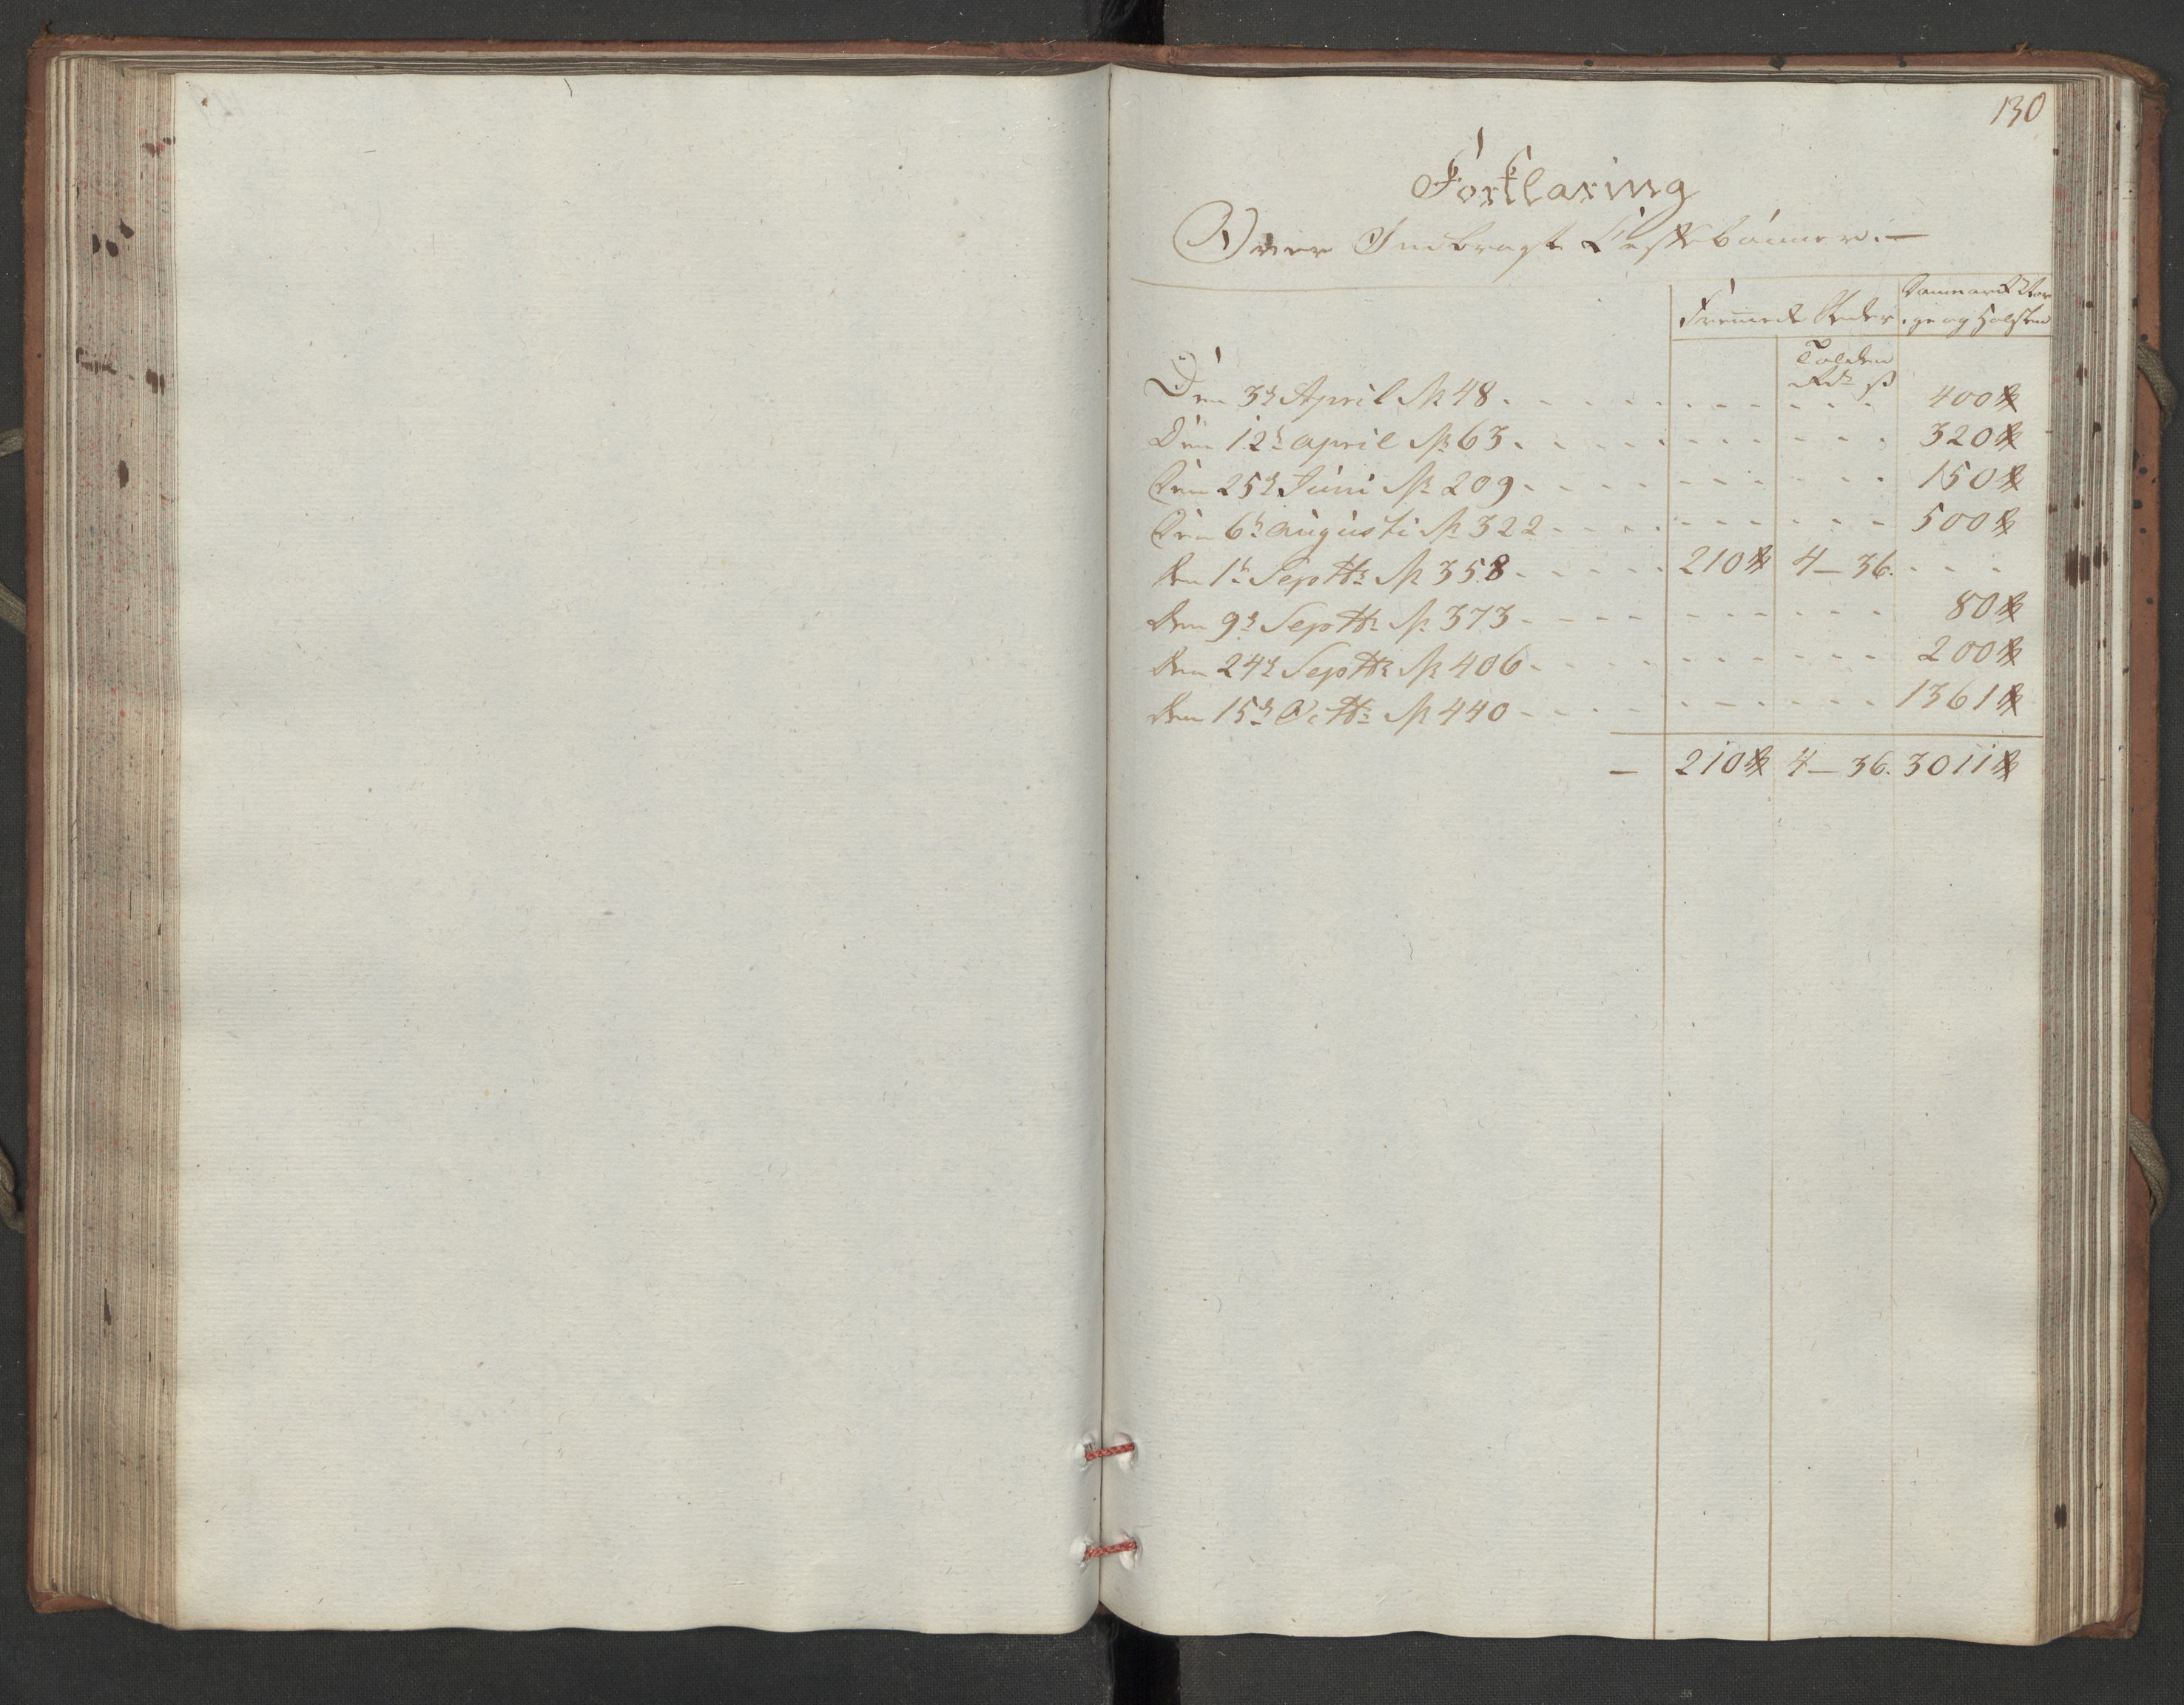 130
Forklaring
Over Indbragt Caffebönner.—
Fremmede Steder. Dannemark Nor
ge og Holsten
Tolden
Rdr ß
Den 3de April No 48 . . . . 400 ℔
Den 12te April No 63 . . . . 320 ℔
Den 25de Juni No 209 . . . . 150 ℔
Den 6te Augusti No 322 . . . . 500 ℔
Den 1te Septbr No 358 . . . . 210 ℔ 4 — 36. . . .
Den 9de Septbr No 373 . . . . 80 ℔
Den 24de Septbr No 406 . . . . 200 ℔
Den 15de Octbr No 440 . . . . 1361 ℔
— 210 ℔ 4 — 36. 3011 ℔